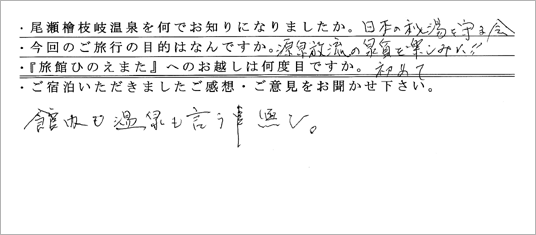 ・尾瀬檜枝岐温泉を何でお知りになりましたか。日本の秘湯を守る会
・今回のご旅行の目的はなんですか。源泉放流の泉質を楽しみに!!
・『旅館ひのえまた』へのお越しは何度目ですか。初めて
・ご宿泊いただきましたご感想・ご意見をお聞かせ下さい。
館内も温泉も言う事無し。